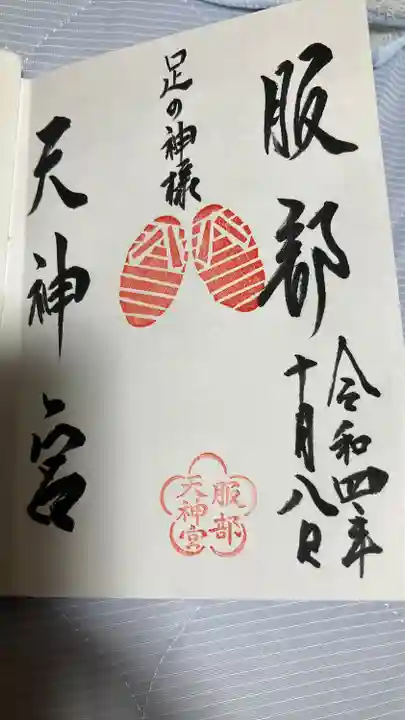 服部
令和四年
十月八日
足の神様
服部
天神宮
天神宮